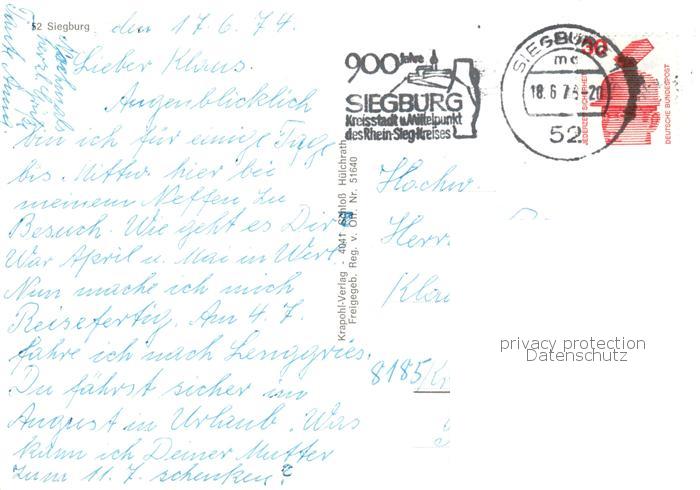 52 Siegburg
den 17.6.74.
Lieber Klaus.
Augenblicklich
bin ich für einige Tage
bis Mittw. hier bei
meinem Neffen zu
Besuch. Wie geht es Dir?
War April u. Mai in Werl.
Nun mache ich mich
Reisefertig. Am 4.7.
fahre ich nach Lenggries.
Du fährst sicher im
August in Urlaub. Was
kann ich Deiner Mutter
zum 11.7. schenken?
Nochmals
herzl. Grüße
Tante Anna
Krapohl-Verlag - 4041 Schloß Hülchrath
Freigegeb. Reg. v. OH Nr. 51640
900 Jahre
SIEGBURG
Kreisstadt u. Mittelpunkt
des Rhein-Sieg-Kreises
SIEGBURG
mc
18.6.74-20
52
30
JEDERZEIT SICHERHEIT
DEUTSCHE BUNDESPOST
Hochw.
Herr
Klau
8185/Kr
privacy protection
Datenschutz